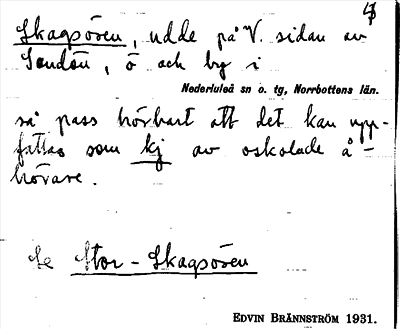 Skagsören, udde på V. sidan av
Sandön, ö och by i
Nederluleå sn o. tg, Norrbottens län.
så pass hörbart att det kan upp-
fattas som kj av oskolade å-
hörare.
Se Stor-Skagsören
EDVIN BRÄNNSTRÖM 1931.